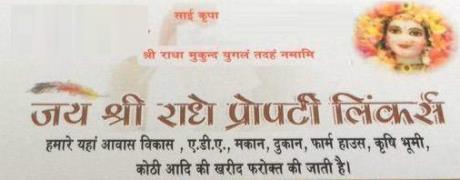 साई कृपा
श्री राधा मुकुन्द युगलं तदहं नमामि
जय श्री राधे प्रोपर्टी लिंकर्स
हमारे यहां आवास विकास , ए.डी.ए., मकान, दुकान, फार्म हाउस, कृषि भूमी,
कोठी आदि की खरीद फरोक्त की जाती है।